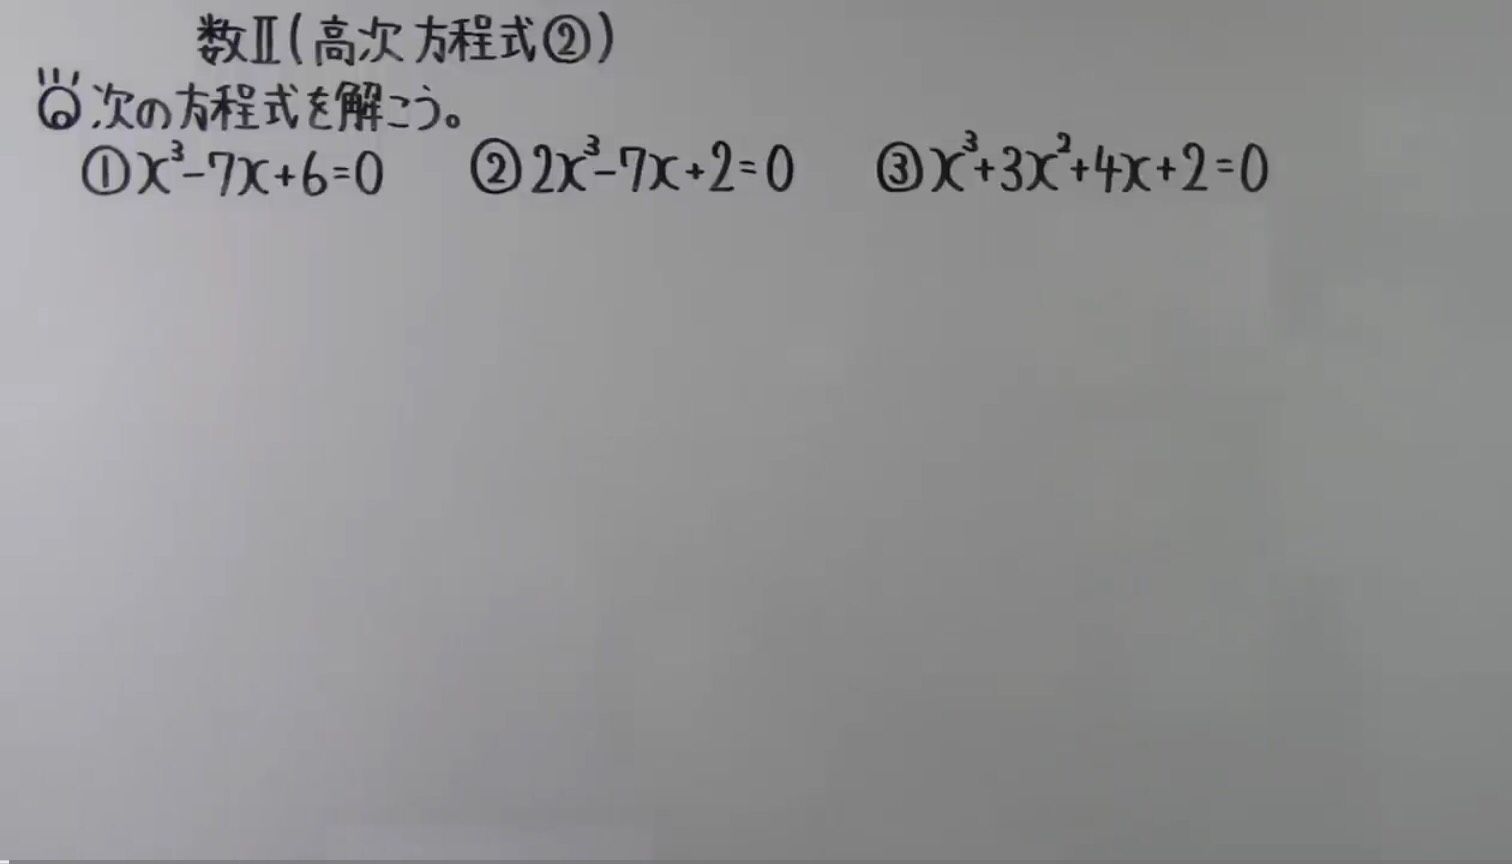 数Ⅱ(高次方程式②)
次の方程式を解こう。
①x³-7x+6=0 ②2x³-7x+2=0 ③x³+3x²+4x+2=0